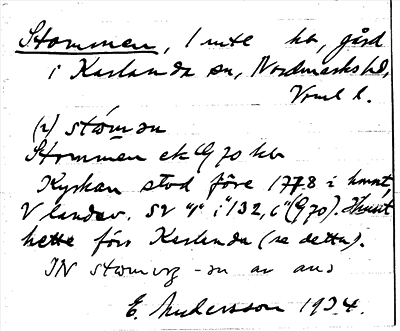 Stommen, 1 mtl kb, gård
i Karlanda sn, Nordmarks hd,
Vrml l.
(2) stòmən
Stommen ek G 70 kb
Kyrkan stod före 1778 i
V landsv. SV "1" i "132,6" (G 70).
hette förr Karlanda (se detta).
IN -ən av ans
E. Andersson 1934.